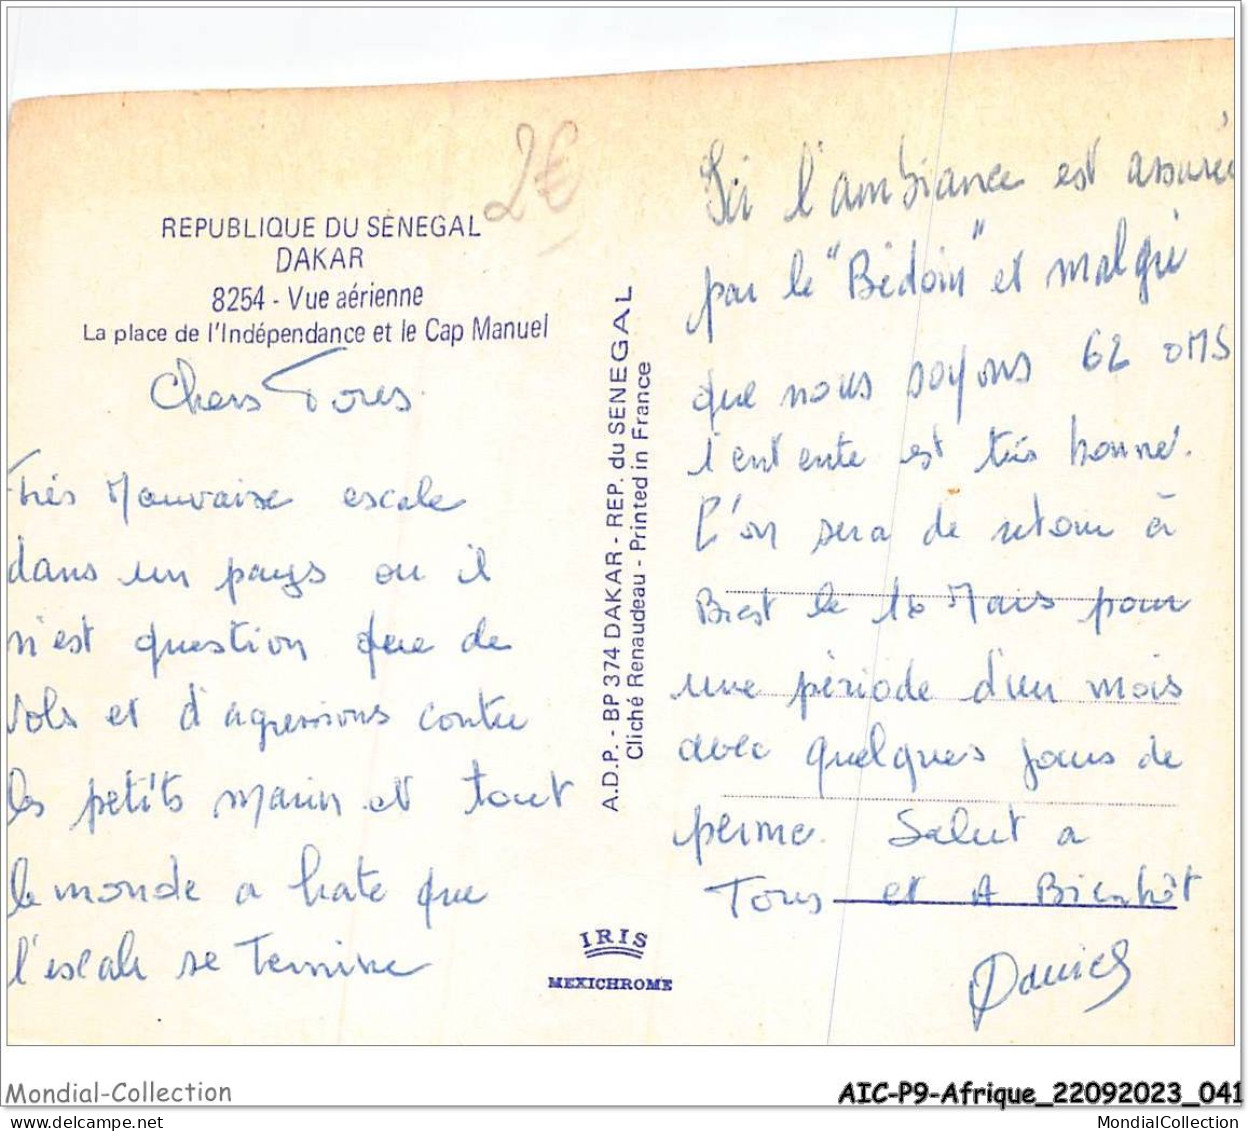 2€
REPUBLIQUE DU SÉNEGAL
DAKAR
8254 - Vue aérienne
La place de l'Indépendance et le Cap Manuel
Chers Tous
très Mauvaise escale
dans un pays ou il
n'est question que de
vols et d'agressions contre
les petits marin et tout
le monde a hate que
l'escale se Termine
A.D.P. - BP 374 DAKAR - REP. du SENEGAL
Cliché Renaudeau - Printed in France
IRIS
MEXICHROME
Ici l'ambiance est assuré
par le "Bédoin" et malgré
que nous soyons 62 OMS
l'entente est très bonne.
L'on sera de retour à
Brest le 16 Mars pour
une période d'un mois
avec quelques jours de
perme. Salut a
Tous et A Bientôt
Daniel
Mondial-Collection
AIC-P9-Afrique_22092023_041
MondialCollection